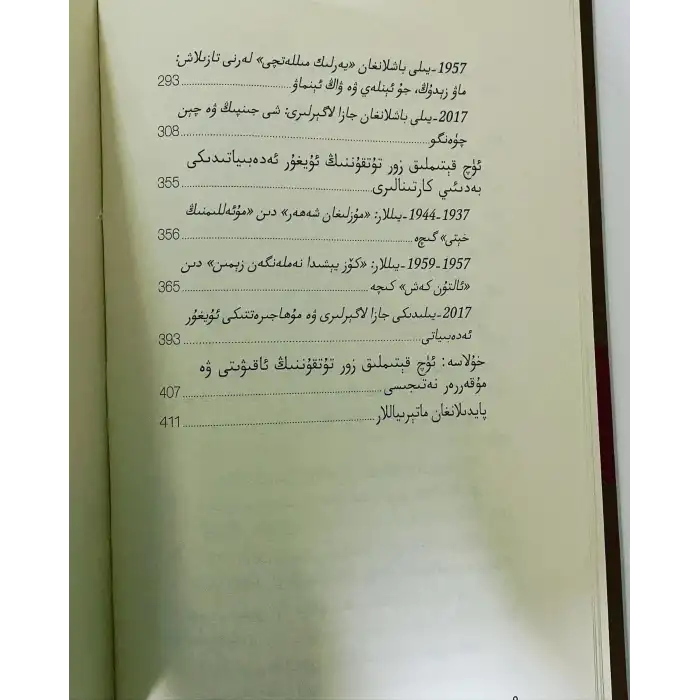 1957-يىلى باشلانغان «يەرلىك مىللەتچى» لەرنى تازىلاش:
ماۋ زېدۇڭ، جۇ ئېنلەي ۋە ۋاڭ ئېنماۋ ........ 293
2017-يىلى باشلانغان جازا لاگېرلىرى: شى جىنپىڭ ۋە چېن
چۈەنگو ........ 308
ئۈچ قېتىملىق زور تۇتقۇننىڭ ئۇيغۇر ئەدەبىياتىدىكى
بەدىئىي كارتىنالىرى ........ 355
1937-1944-يىللار: «مۇزلىغان شەھەر» دىن «مۇئەللىمنىڭ
خېتى» گىچە ........ 356
1957-1959-يىللار: «كۆز يېشىدا نەملەنگەن زېمىن» دىن
«ئالتۇن كەش» كىچە ........ 365
2017-يىلىدىكى جازا لاگېرلىرى ۋە مۇھاجىرەتتىكى ئۇيغۇر
ئەدەبىياتى ........ 393
خۇلاسە: ئۈچ قېتىملىق زور تۇتقۇننىڭ ئاقىۋىتى ۋە
مۇقەررەر نەتىجىسى ........ 407
پايدىلانغان ماتېرىياللار ........ 411